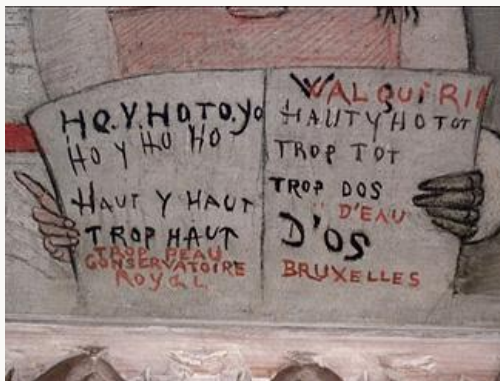 HO.Y.HOTO.YO
HO Y HO HO
HAUT Y HAUT
TROP HAUT
TROP PEAU
CONSERVATOIRE
ROYAL
WALQUERIE
HAUT Y HO TOT
TROP TOT
TROP DOS
D'EAU
D'OS
BRUXELLES